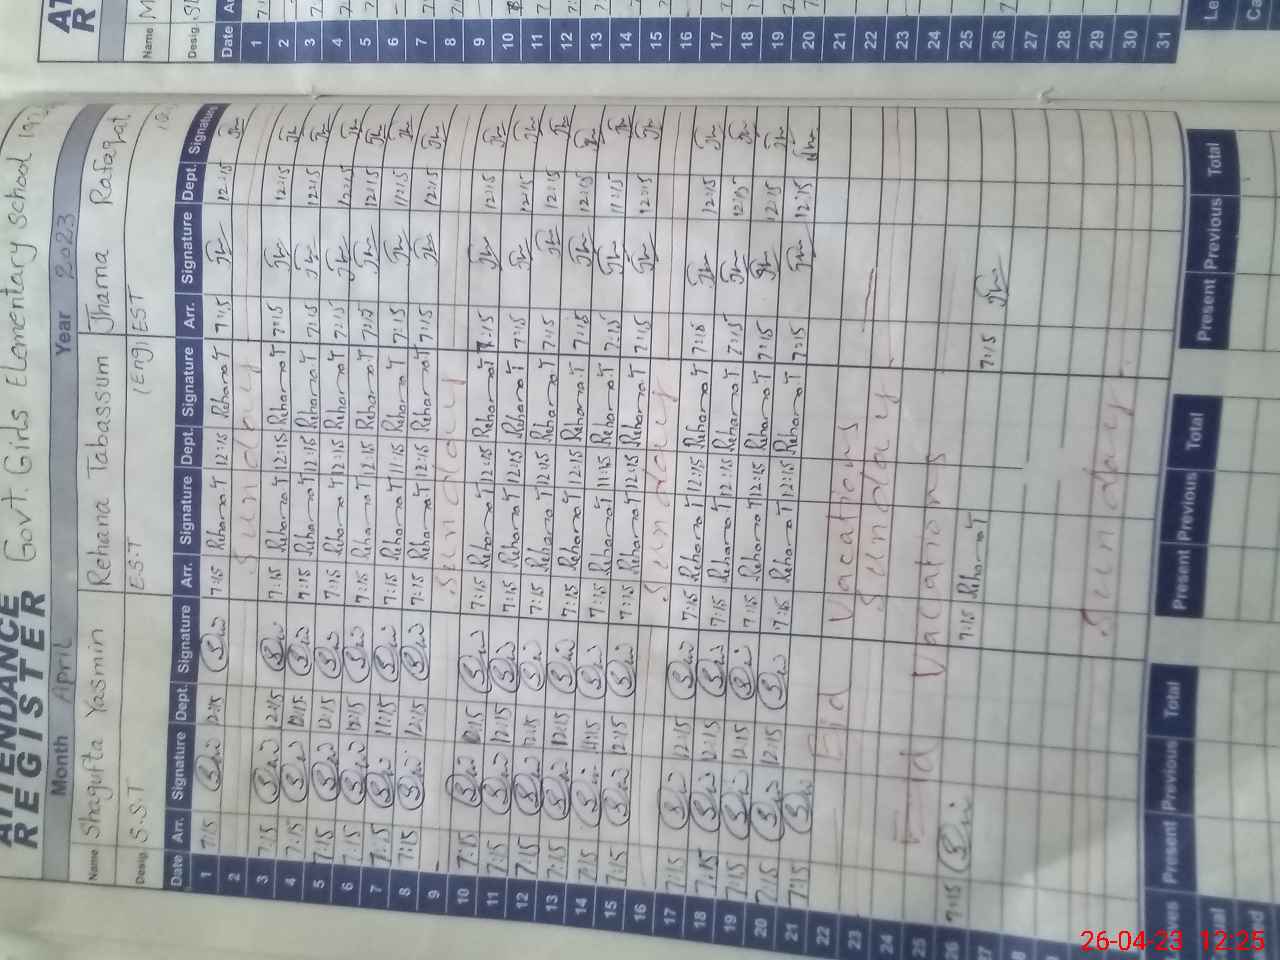 ATTENDANCE REGISTER
Govt. Girls Elementary School
Month April Year 2023
Name Shagufta Yasmin Rehana Tabassum Jhama Rafaqat
Desig. S.S.T E.S.T (Eng) EST
Date Arr. Signature Dept. Signature Arr. Signature Dept. Signature Arr. Signature Dept. Signature
1 7:15 12:15 7:15 Rehana T 12:15 Rehana T 7:15 12:15
2 Sunday
3 7:15 12:15 7:15 Rehana T 12:15 Rehana T 7:15 12:15
4 7:15 12:15 7:15 Rehana T 12:15 Rehana T 7:15 12:15
5 7:15 12:15 7:15 Rehana T 12:15 Rehana T 7:15 12:15
6 7:15 12:15 7:15 Rehana T 12:15 Rehana T 7:15 12:15
7 7:15 11:15 7:15 Rehana T 11:15 Rehana T 7:15 11:15
8 7:15 12:15 7:15 Rehana T 12:15 Rehana T 7:15 12:15
9 Sunday
10 7:15 12:15 7:15 Rehana T 12:15 Rehana T 7:15 12:15
11 7:15 12:15 7:15 Rehana T 12:15 Rehana T 7:15 12:15
12 7:15 12:15 7:15 Rehana T 12:15 Rehana T 7:15 12:15
13 7:15 12:15 7:15 Rehana T 12:15 Rehana T 7:15 12:15
14 7:15 11:15 7:15 Rehana T 11:15 Rehana T 7:15 11:15
15 7:15 12:15 7:15 Rehana T 12:15 Rehana T 7:15 12:15
16 Sunday
17 7:15 12:15 7:15 Rehana T 12:15 Rehana T 7:15 12:15
18 7:15 12:15 7:15 Rehana T 12:15 Rehana T 7:15 12:15
19 7:15 12:15 7:15 Rehana T 12:15 Rehana T 7:15 12:15
20 7:15 12:15 7:15 Rehana T 12:15 Rehana T 7:15 12:15
21 7:15
22 Eid Vacations
23 Sunday
24
25 Eid Vacations
26 7:15 7:15 Rehana T 7:15
27
Sunday
Present Previous Total Present Previous Total Present Previous Total
Name
Desig.
Date
1
2
3
4
5
6
7
8
9
10
11
12
13
14
15
16
17
18
19
20
21
22
23
24
25
26
27
28
29
30
31
26-04-23 12:25